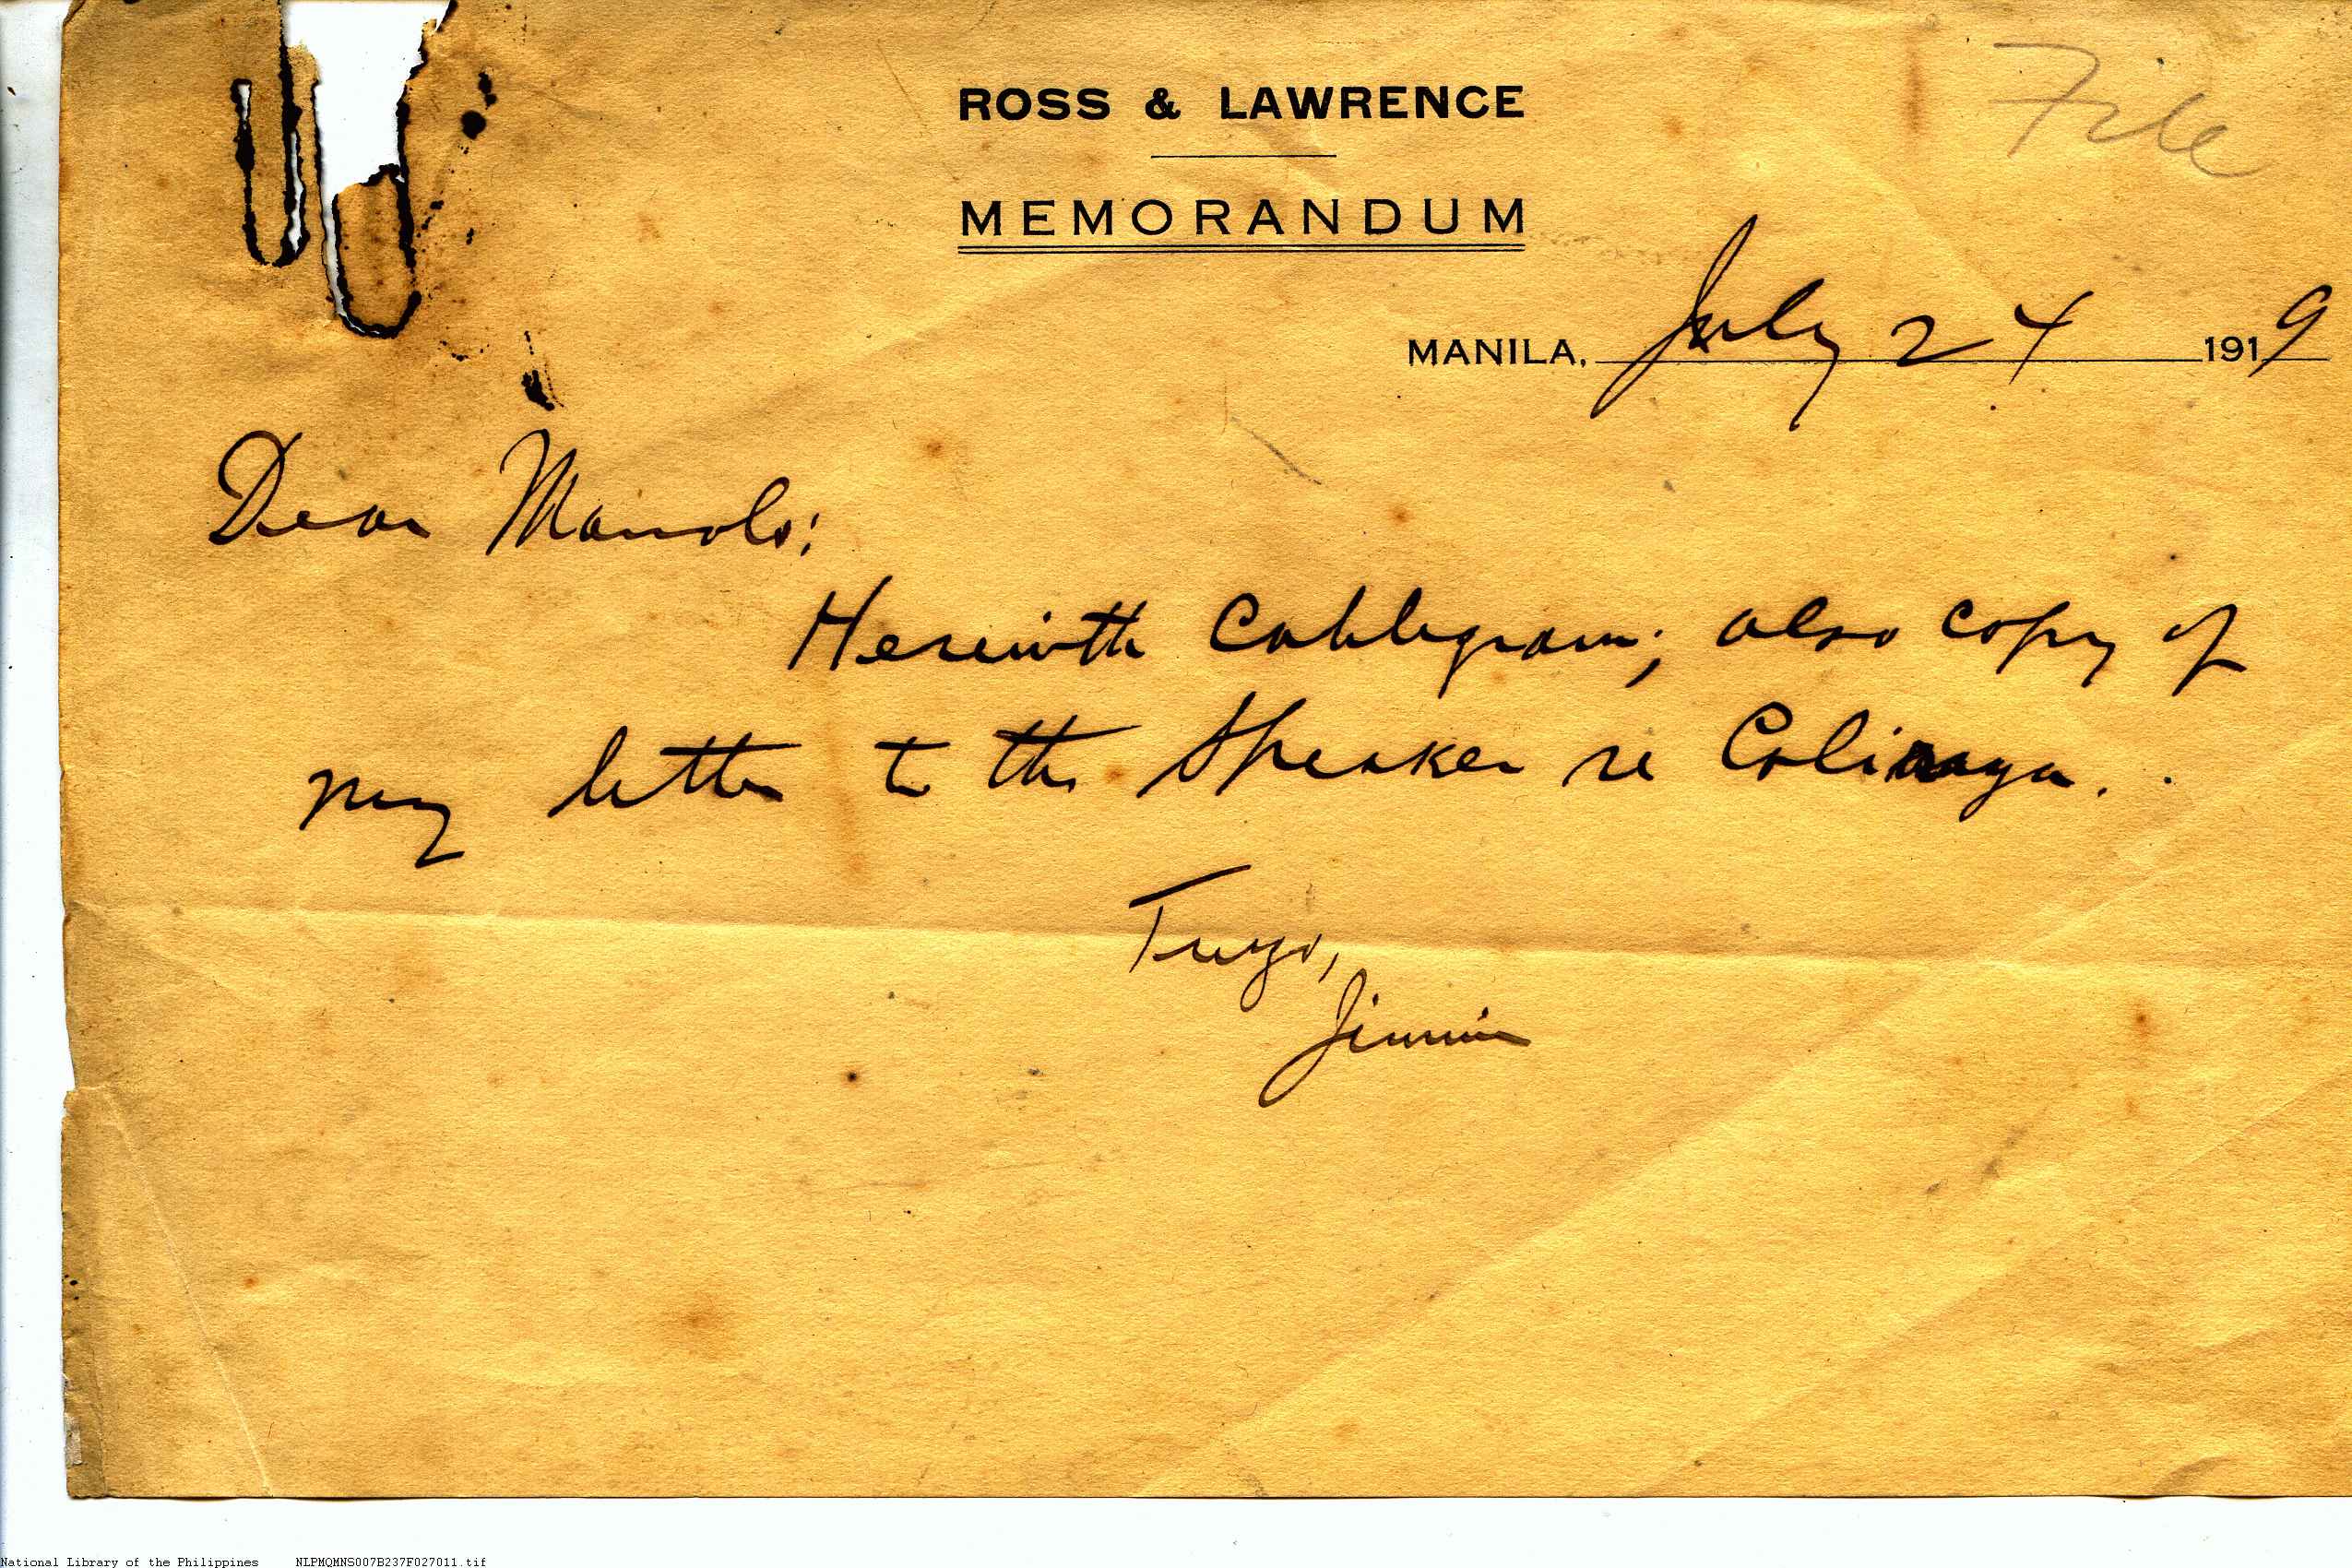 File
ROSS & LAWRENCE
MEMORANDUM
MANILA, July 24 1919
Dear Manolo:
Herewith cablegram; also copy of
my letter to the Speaker re Calinaga.
Tuyo,
Jimmie
National Library of the Philippines NLPMQMNS007B237F027011.tif